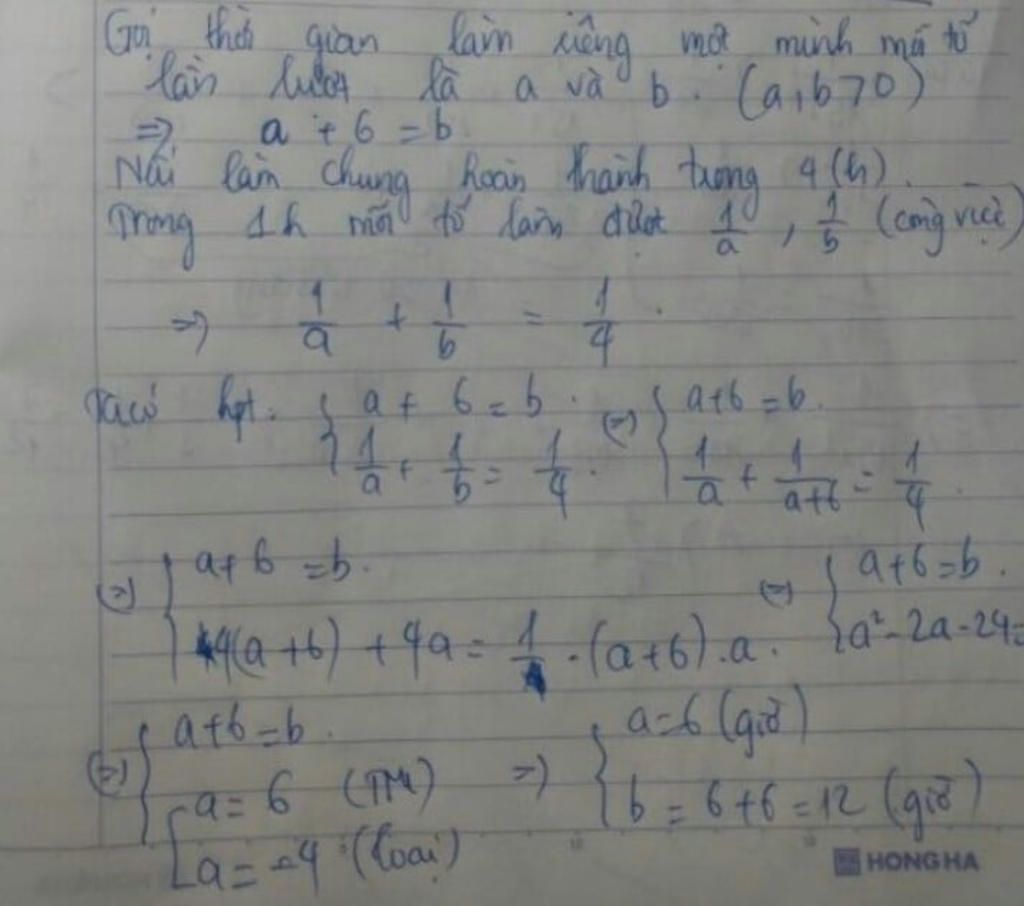 Gọi thời gian làm riêng một mình mỗi tổ
lần lượt là a và b. (a,b>0)
=> a + 6 = b
Nếu làm chung hoàn thành trong 4 (h).
Trong 1h mỗi tổ làm được 1/a , 1/b (công việc)
=> 1/a + 1/b = 1/4.
Ta có hpt: { a + 6 = b. (=) { a+6 = b.
1/a + 1/b = 1/4. 1/a + 1/(a+6) = 1/4.
(=) { a+6 = b. (=) { a+6 = b.
4(a+6) + 4a = 1 . (a+6).a. a² - 2a - 24 =
(=) { a+6 = b. => { a = 6 (giờ)
[ a = 6 (TM) b = 6+6 = 12 (giờ)
a = -4 (loại)
HONG HA